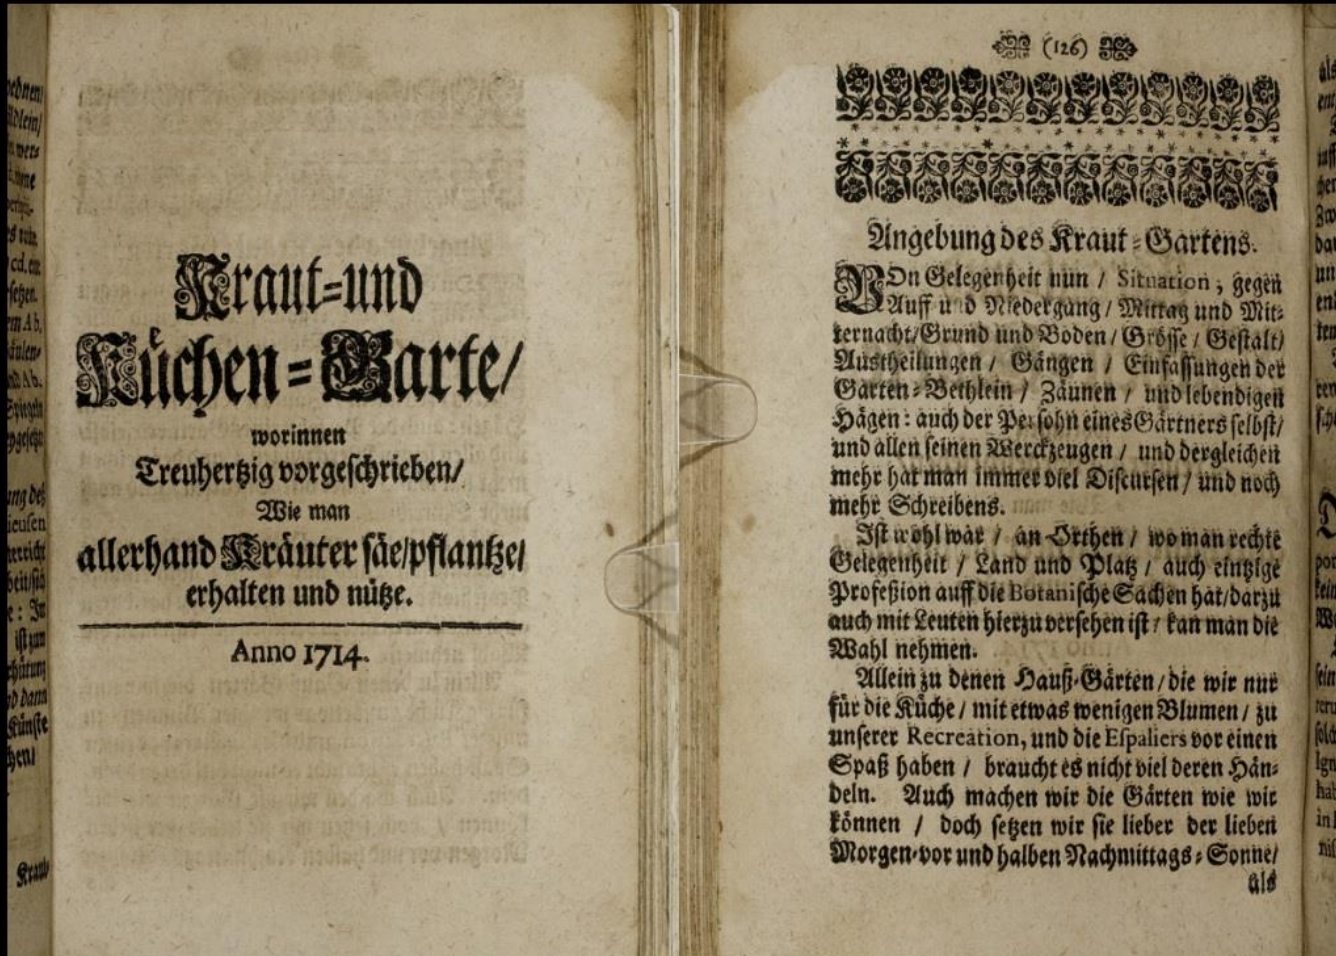 Kraut-und
Küchen-Garte/
worinnen
Treuhertzig vorgeschrieben/
Wie man
allerhand Kräuter säe/pflantze/
erhalten und nütze.
Anno 1714.
(126)
Angebung des Kraut-Gartens.
VOn Gelegenheit nun / Situation, gegen
Auff und Niedergang / Mittag und Mit-
ternacht/Grund und Boden / Grösse / Gestalt/
Austheilungen / Gängen / Einfassungen der
Garten-Bethlein / Zäunen / und lebendigen
Hägen: auch der Persohn eines Gärtners selbst/
und allen seinen Werckzeugen / und dergleichen
mehr hat man immer viel Discursen / und noch
mehr Schreibens.
Ist wohl war / an Orthen / wo man rechte
Gelegenheit / Land und Platz / auch eintzige
Profeßion auff die Botanische Sachen hat/darzu
auch mit Leuten hierzu versehen ist / kan man die
Wahl nehmen.
Allein zu denen Hauß-Gärten/die wir nur
für die Küche / mit etwas wenigen Blumen / zu
unserer Recreation, und die Espaliers vor einen
Spaß haben / braucht es nicht viel deren Hän-
deln. Auch machen wir die Gärten wie wir
können / doch setzen wir sie lieber der lieben
Morgen-vor und halben Nachmittags-Sonne/
als